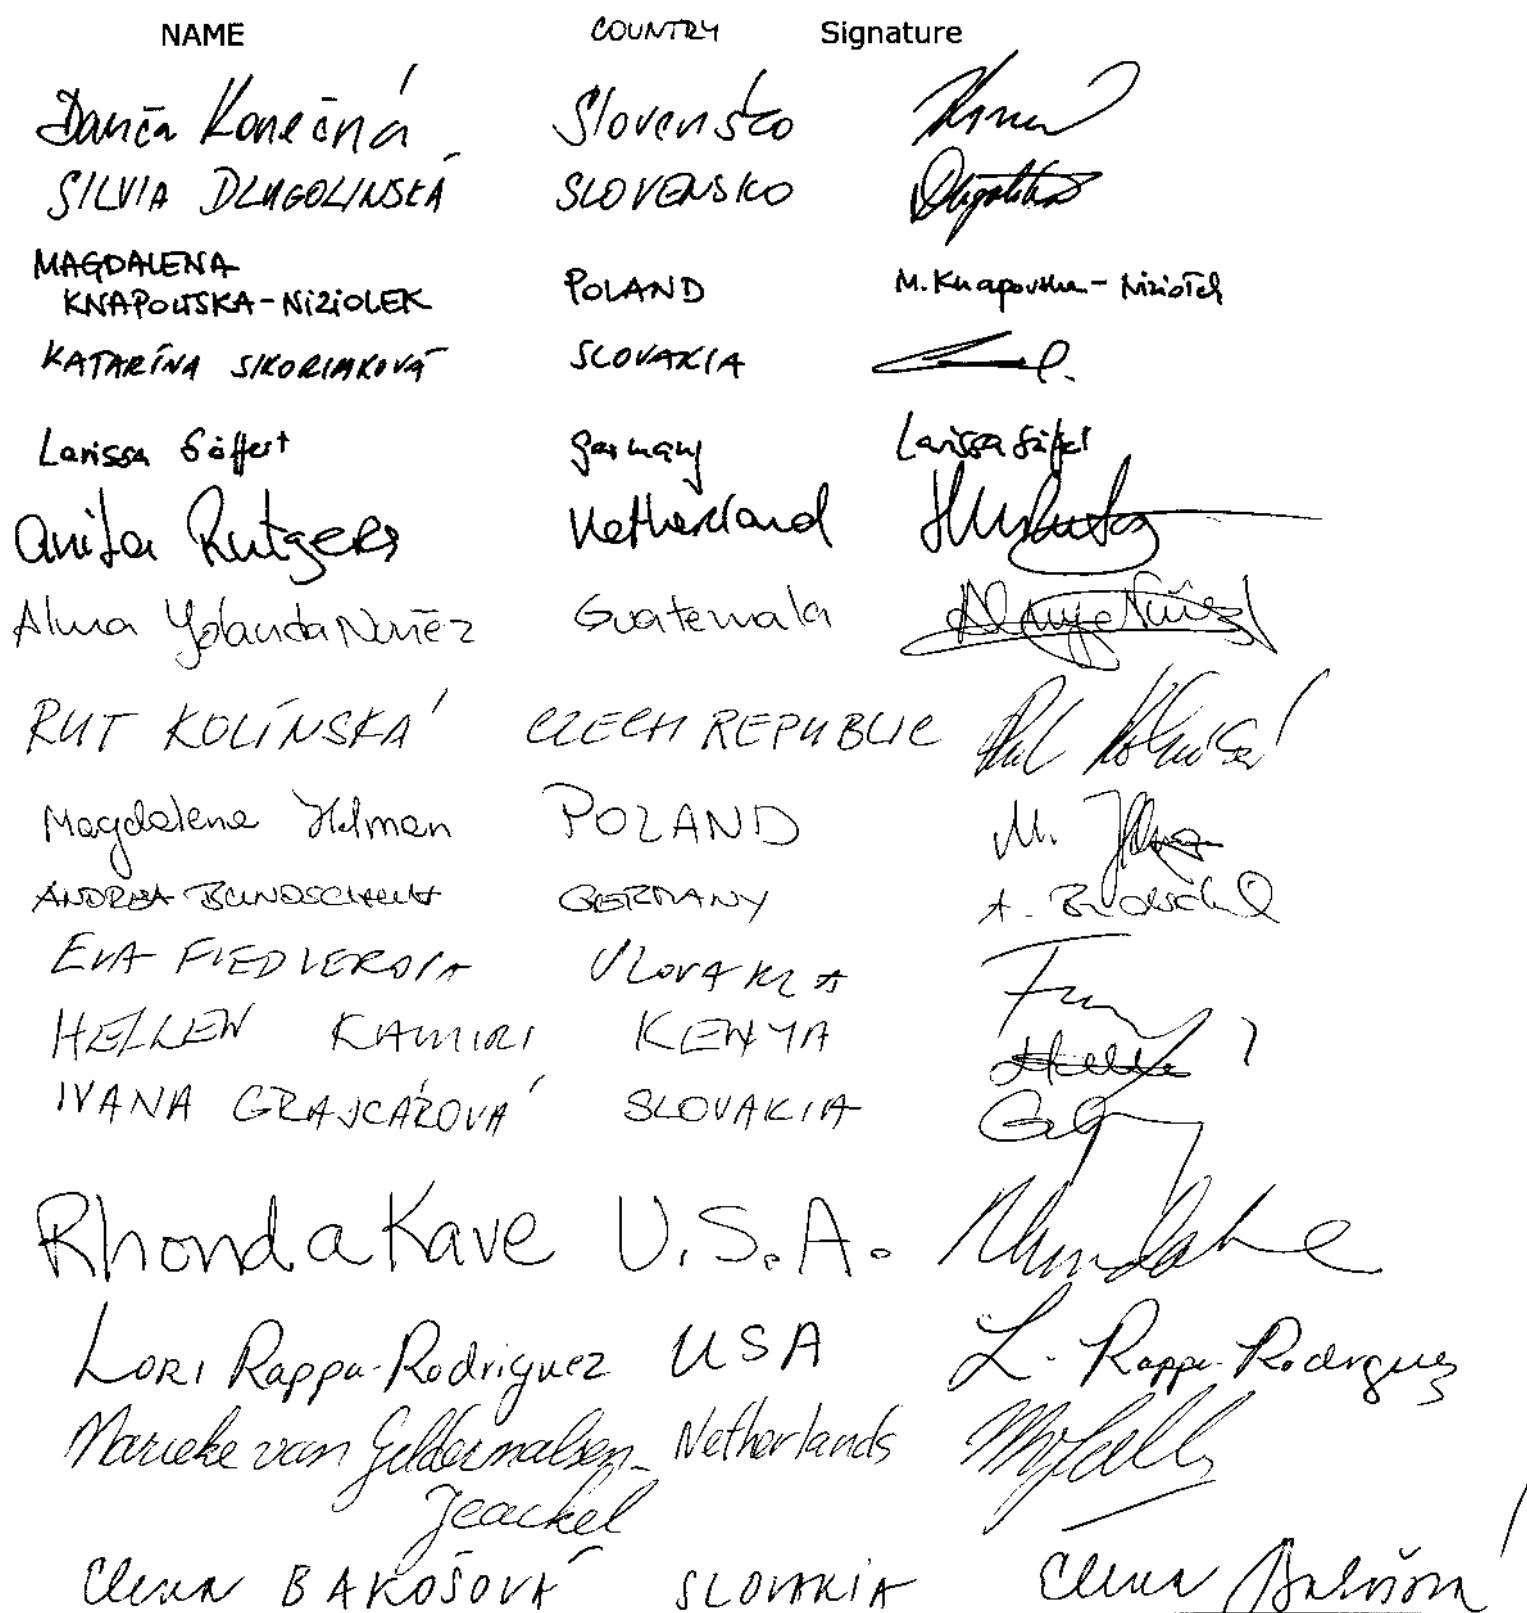 NAME COUNTRY Signature
Danča Konečná Slovensko
SILVIA DLUGOLINSKÁ SLOVENSKO
MAGDALENA
KNAPOWSKA-NIZIOLEK POLAND M. Knapowska-Niziołek
KATARÍNA SIKORIAKOVÁ SLOVAKIA
Larissa Säffert Germany Larissa
Anita Rutgers Netherland
Alma Yolanda Nuñez Guatemala Nuñez
RUT KOLÍNSKÁ CZECH REPUBLIC Rut Kolínská
Magdalena Helman POLAND M.
ANDREA BUNDSCHUH GERMANY A.
EVA FIEDLEROVA SLOVAKIA
HELLEN KAMIRI KENYA
IVANA GRAJCÁROVÁ SLOVAKIA
Rhonda Kave U.S.A.
LORI Rappa-Rodriguez USA L. Rappa-Rodriguez
Marieke van Geldermalsen- Netherlands
Jeackel
Elena BAKOŠOVÁ SLOVAKIA Elena Bakošová